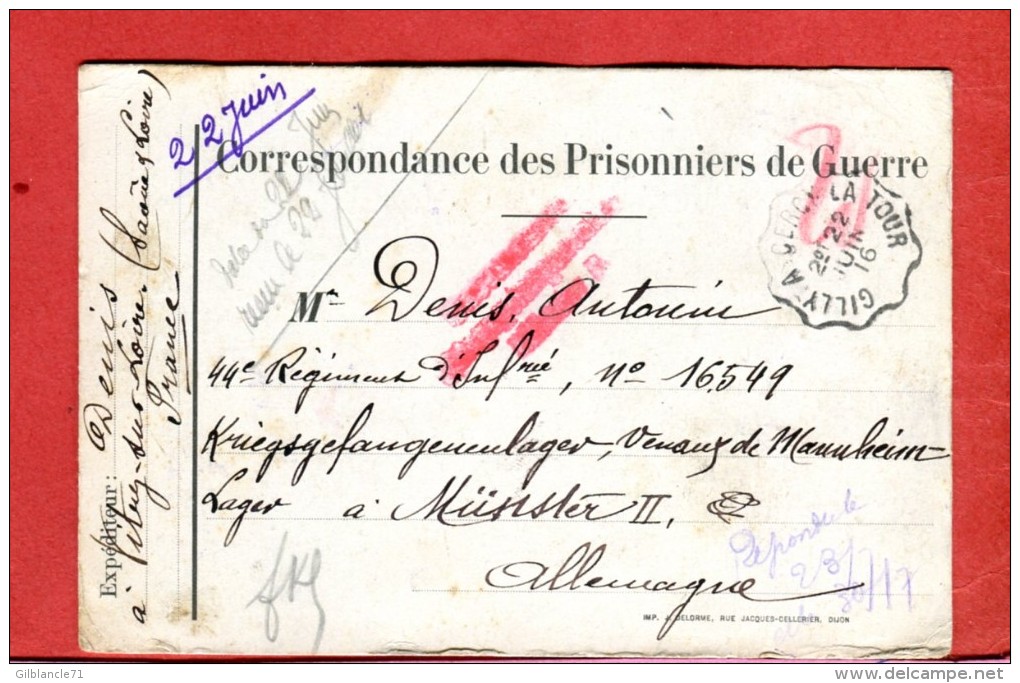 22 Juin
Correspondance des Prisonniers de Guerre
GILLY A CERCY LA TOUR
2° 22
JUIN
16
Mr Denis, Antonin
44e Régiment d'Infrie, No 16549
Kriegsgefangenenlager, Venant de Mannheim-
Lager à Münster II,
Allemagne
Expéditeur: Denis
à sur-Loire (Saône & Loire)
France
Repondu le
23/7
IMP. J. DELORME, RUE JACQUES-CELLERIER, DIJON
Gilblancle71
delcampe.net